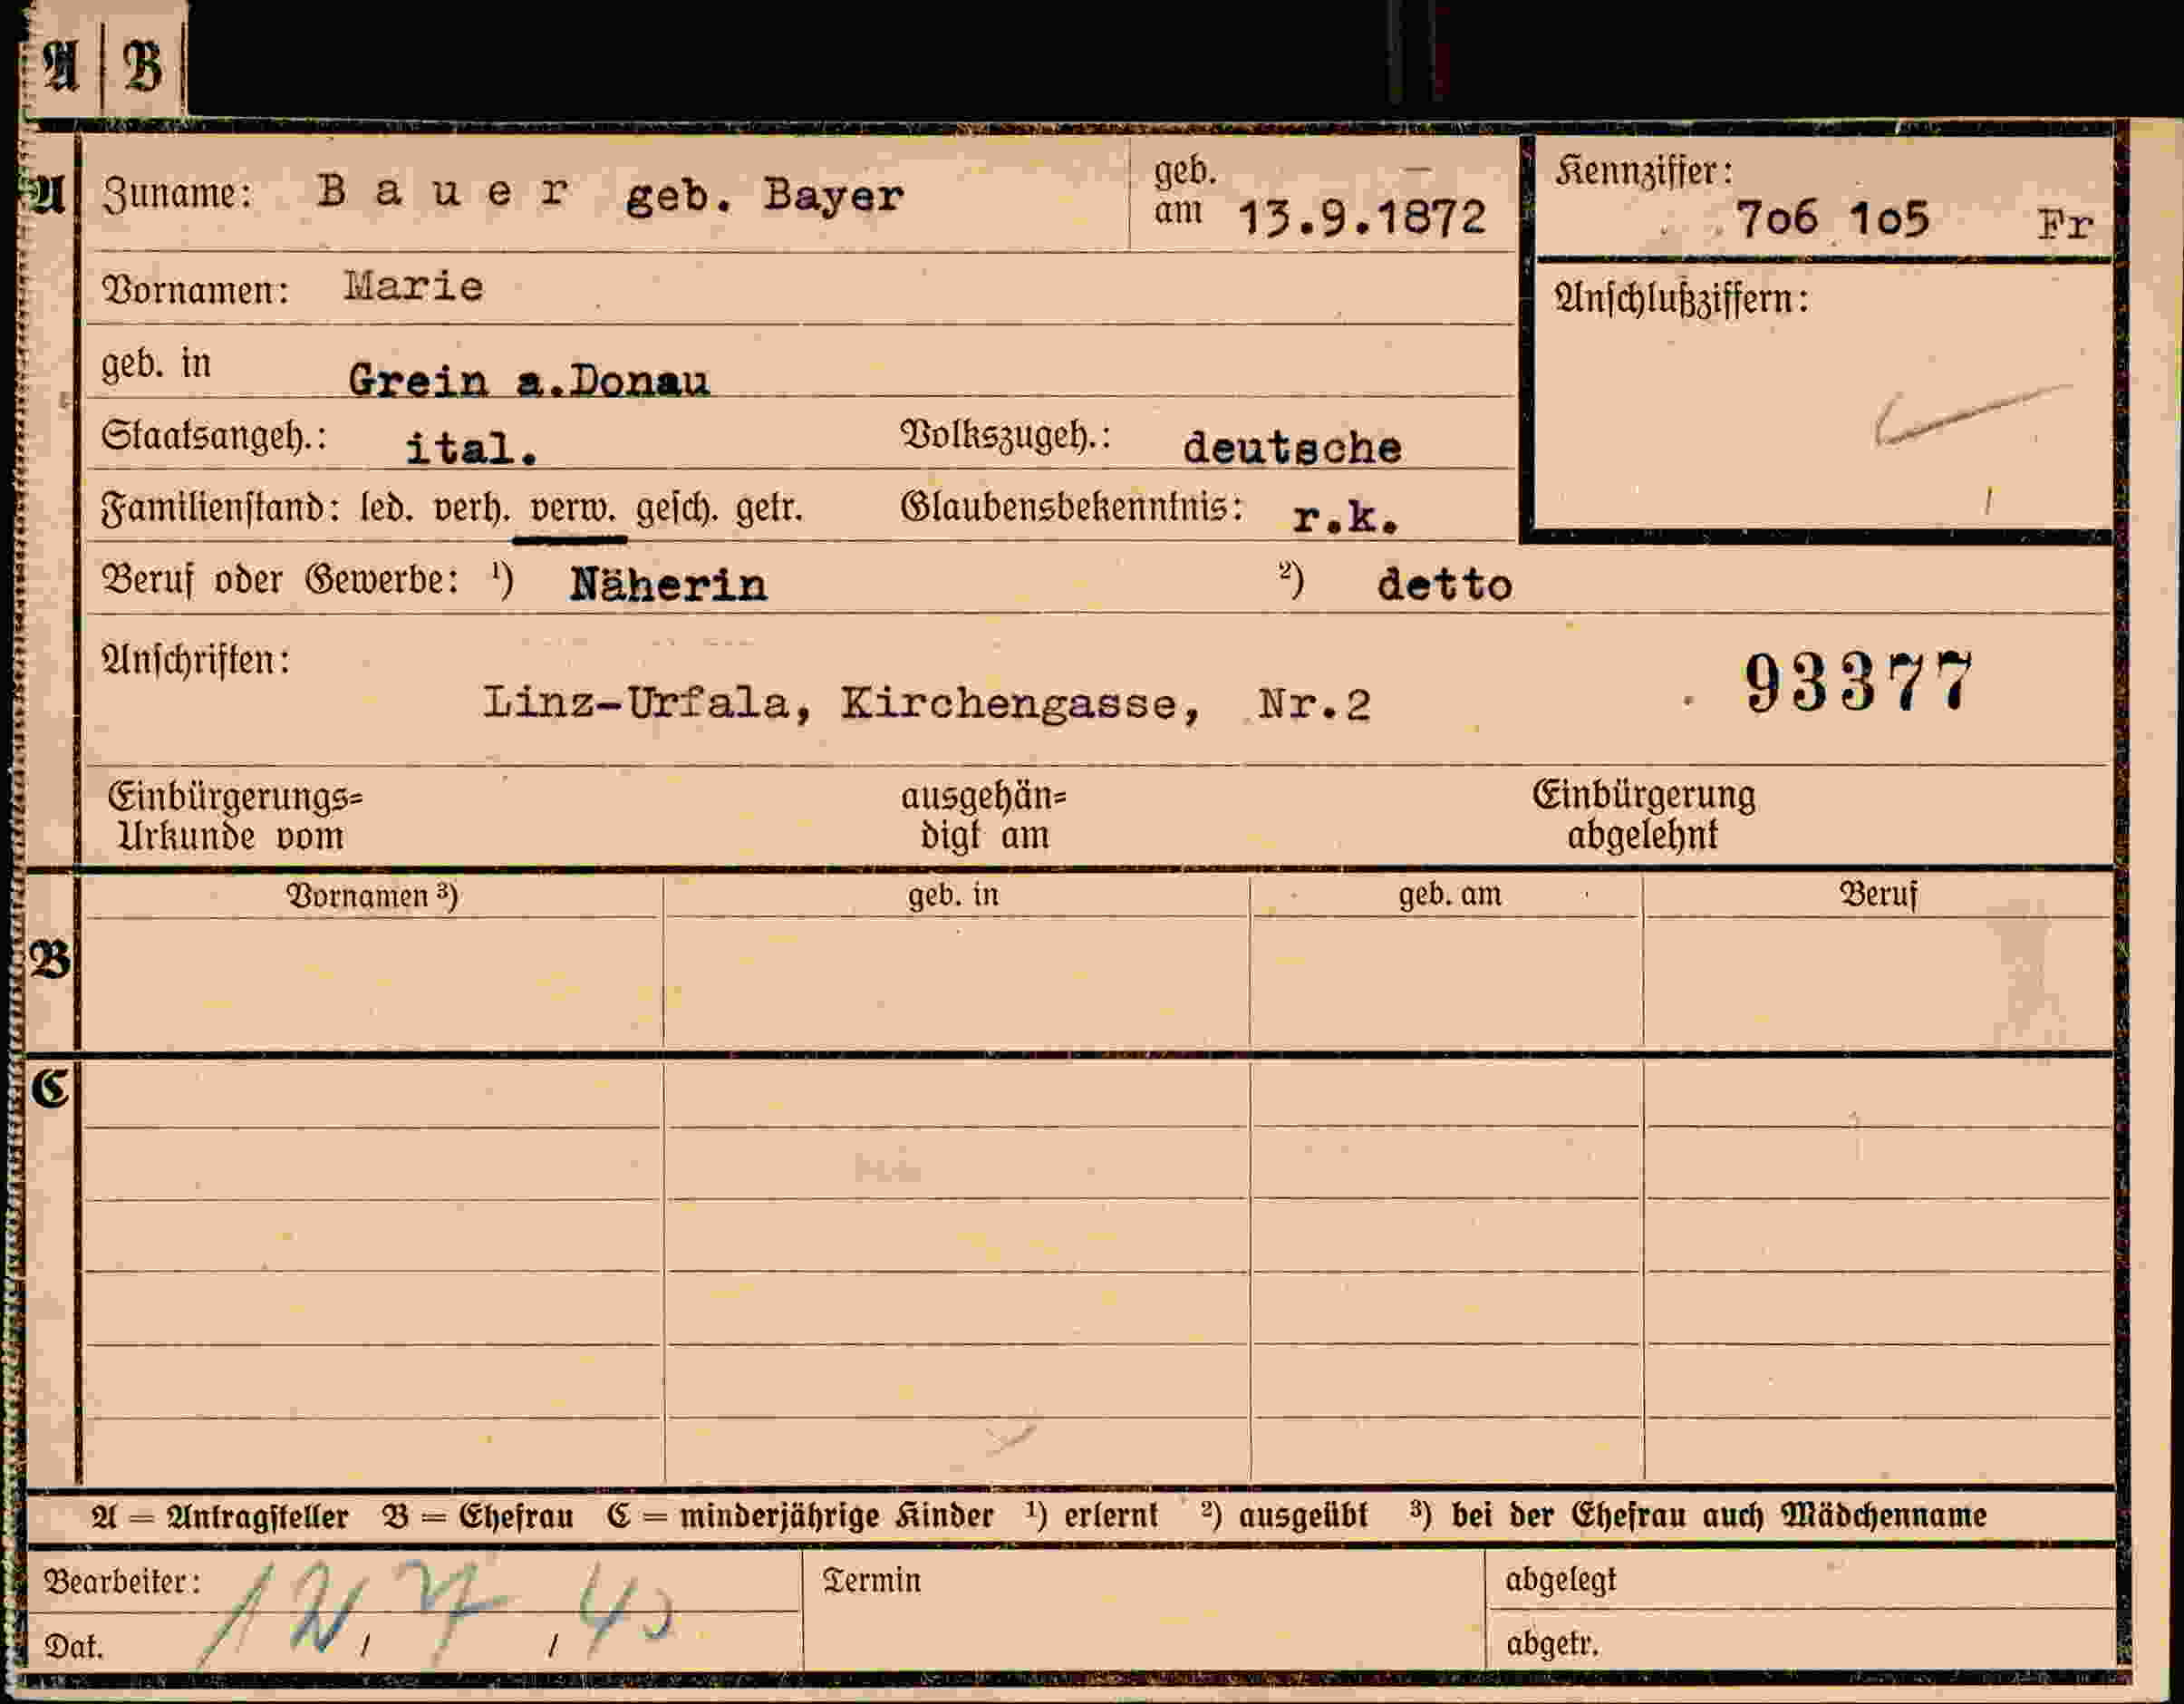 A B
A Zuname: Bauer geb. Bayer geb. am 13.9.1872 Kennziffer: 7o6 1o5 Fr
Vornamen: Marie Anschlußziffern:
geb. in Grein a.Donau
Staatsangeh.: ital. Volkszugeh.: deutsche
Familienstand: led. verh. verw. gesch. getr. Glaubensbekenntnis: r.k.
Beruf oder Gewerbe: ¹) Näherin ²) detto
Anschriften: 93377
Linz-Urfala, Kirchengasse, Nr.2
Einbürgerungs= ausgehän= Einbürgerung
Urkunde vom digt am abgelehnt
Vornamen ³) geb. in geb. am Beruf
B
C
A = Antragsteller B = Ehefrau C = minderjährige Kinder ¹) erlernt ²) ausgeübt ³) bei der Ehefrau auch Mädchenname
Bearbeiter: Termin abgelegt
Dat. 12 / 7 / 40 abgetr.